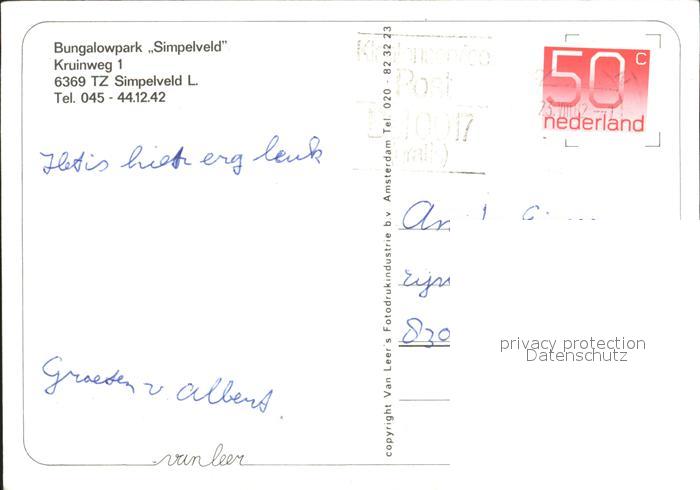 Bungalowpark „Simpelveld”
Kruinweg 1
6369 TZ Simpelveld L.
Tel. 045 - 44.12.42
50 c
nederland
Klantenservice
Post
0017
Het is hier erg leuk
Groeten v Albert.
van leer
copyright Van Leer's Fotodrukindustrie b.v. Amsterdam Tel. 020 - 82 32 23
830
privacy protection
Datenschutz